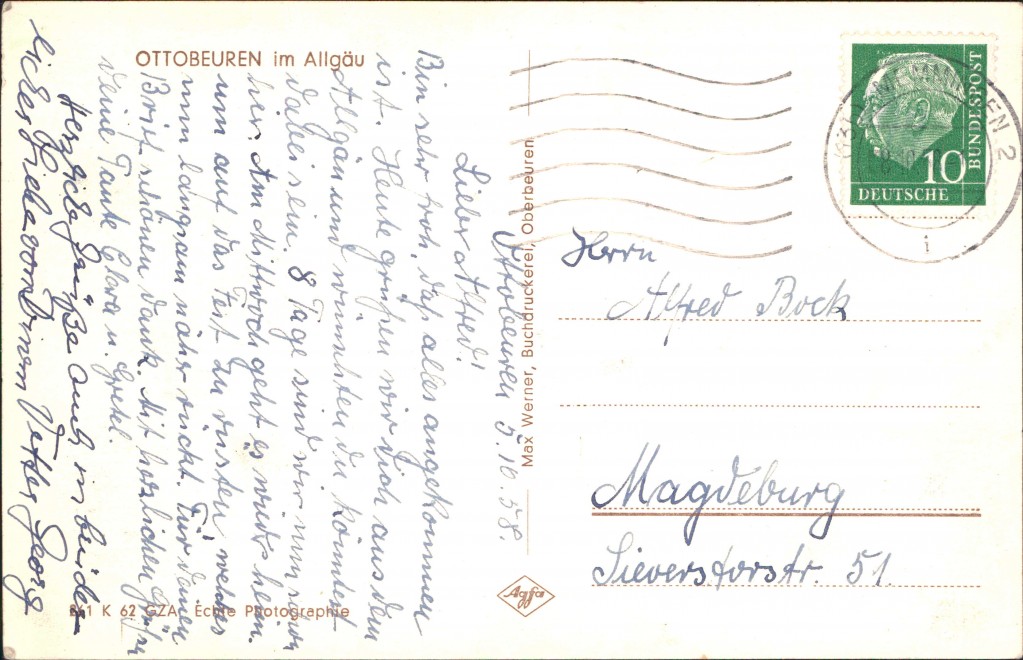 OTTOBEUREN im Allgäu
Ottobeuren 5.10.58.
Lieber Alfred!
Bin sehr froh, daß alles angekommen
ist. Heute grüßen wir dich aus dem
Allgäu und wünschten du könntest
dabei sein. 8 Tage sind wir nun schon
hier. Am Mittwoch geht es wieder heim.
um auf das Fest zu rüsten, welches
nun langsam näher rückt. Für deinen
Brief schönen Dank. Mit herzlichen Grüßen
deine Tante Clara u. Gretel.
Herzliche Grüße auch in
Liebe von Deinem Vetter Georg
861 K 62 GZA. Echte Photographie
Max Werner, Buchdruckerei, Oberbeuren
Agfa
DEUTSCHE
BUNDESPOST
10
2
i
Herrn
Alfred Bock
Magdeburg
Sieverstorstr. 51.